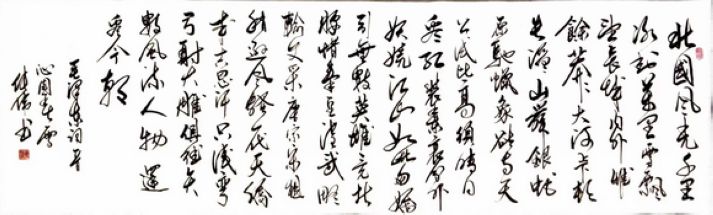 北國風光千里
冰封萬里雪飄
望長城內外惟
餘莽莽大河上下頓
失滔滔山舞銀蛇
原馳蠟象欲與天
公試比高須晴日
看紅裝素裹分外
妖嬈江山如此多嬌
引無數英雄競折
腰惜秦皇漢武略
輸文采唐宗宋祖
稍遜風騷一代天驕
成吉思汗只識彎
弓射大雕俱往矣
數風流人物還
看今朝
毛澤東詞一首
沁園春雪
書